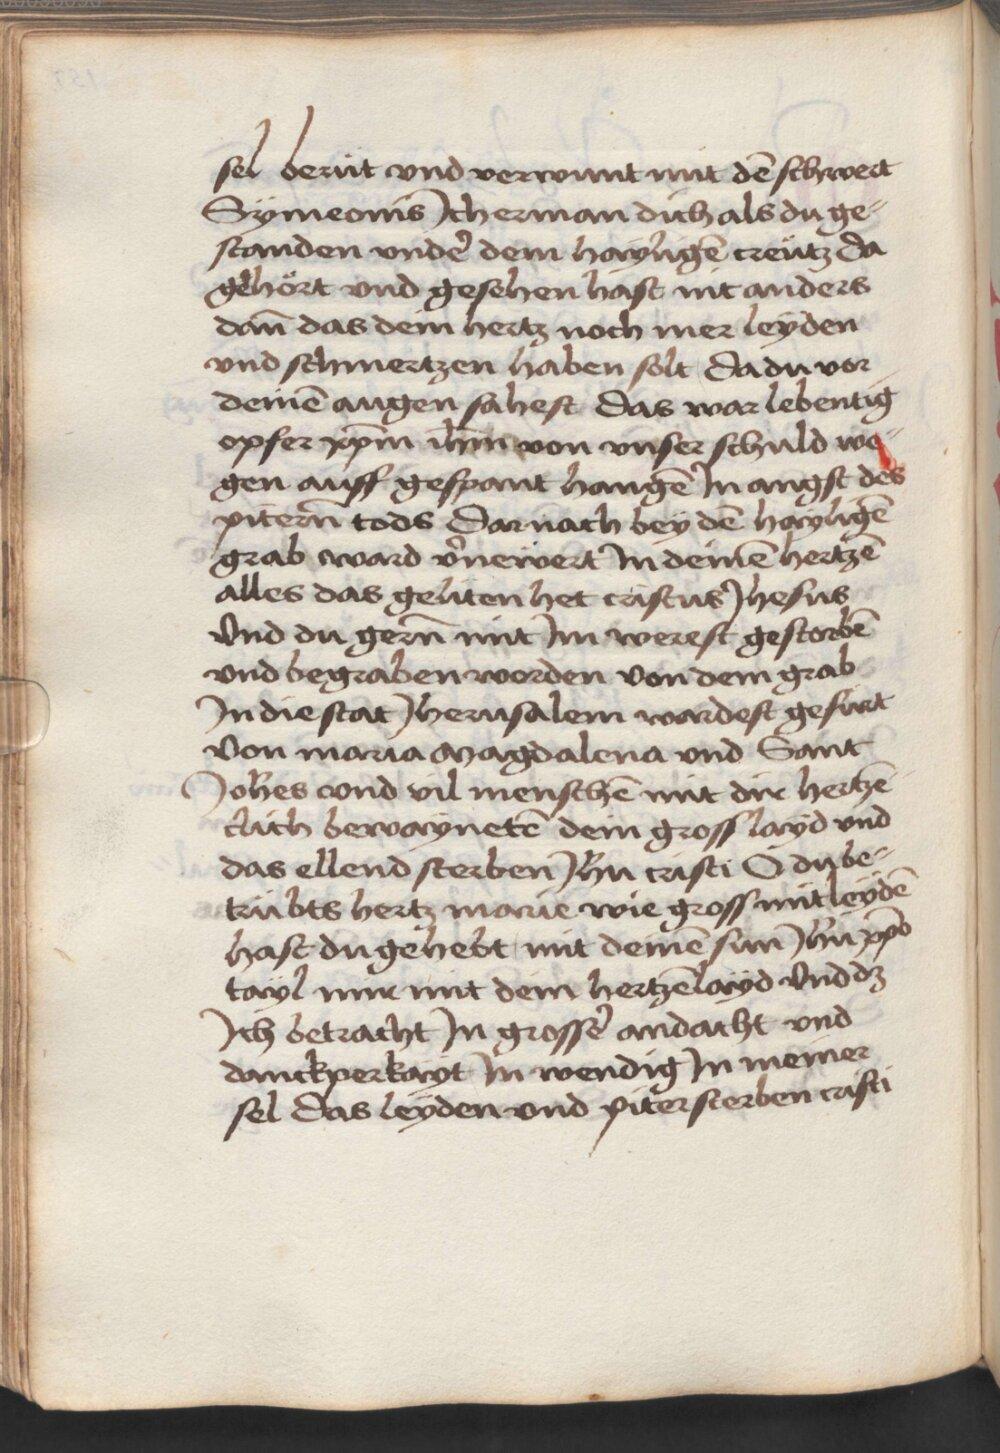 sel berüt vnd verwunt mit dē schwert
Sÿmeonis Ich erman dich als du ge-
standen vnder dem hayligē creütz da
gehört vnd gesehen hast nit anders
dañ das dein hertz noch mer leyden
vnd schmertzen haben solt Da du vor
deinē augen sahest Das war lebentig
opfer xp̄m ih̄m von vnser schuld we-
gen auff gespant hangē In angst des
pitern̄ tods Darnach bey dē hayligē
grab ward v̓newert In deinē hertzē
alles das geliten het cristus Jhesus
Vnd du gern̄ mit Im werest gestorbē
vnd begraben worden Von dem grab
In die stat Jherusalem wardest gefürt
Von maria Magdalena vnd Sant
Joh̄es vnd vil menschē mit dir hertzē
clich bewaynetē dein gross layd vnd
das ellend sterben Jh̄u cristi O du be-
trübts hertz marie wie gross mitleydē
hast du gehebt mit deinē sun Jh̄u xp̄o
tayl mir mit dein hertzēlayd Vnd dz
Ich betracht In grosser andacht vnd
danckperkayt In wendig In meiner
sel Das leyden vnd piter sterben cristi